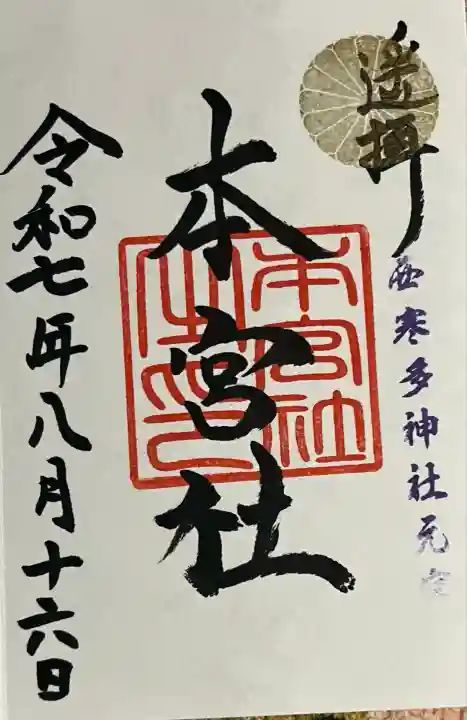 遥拝
西寒多神社元宮
本宮社
本宮社之印
令和七年八月十六日